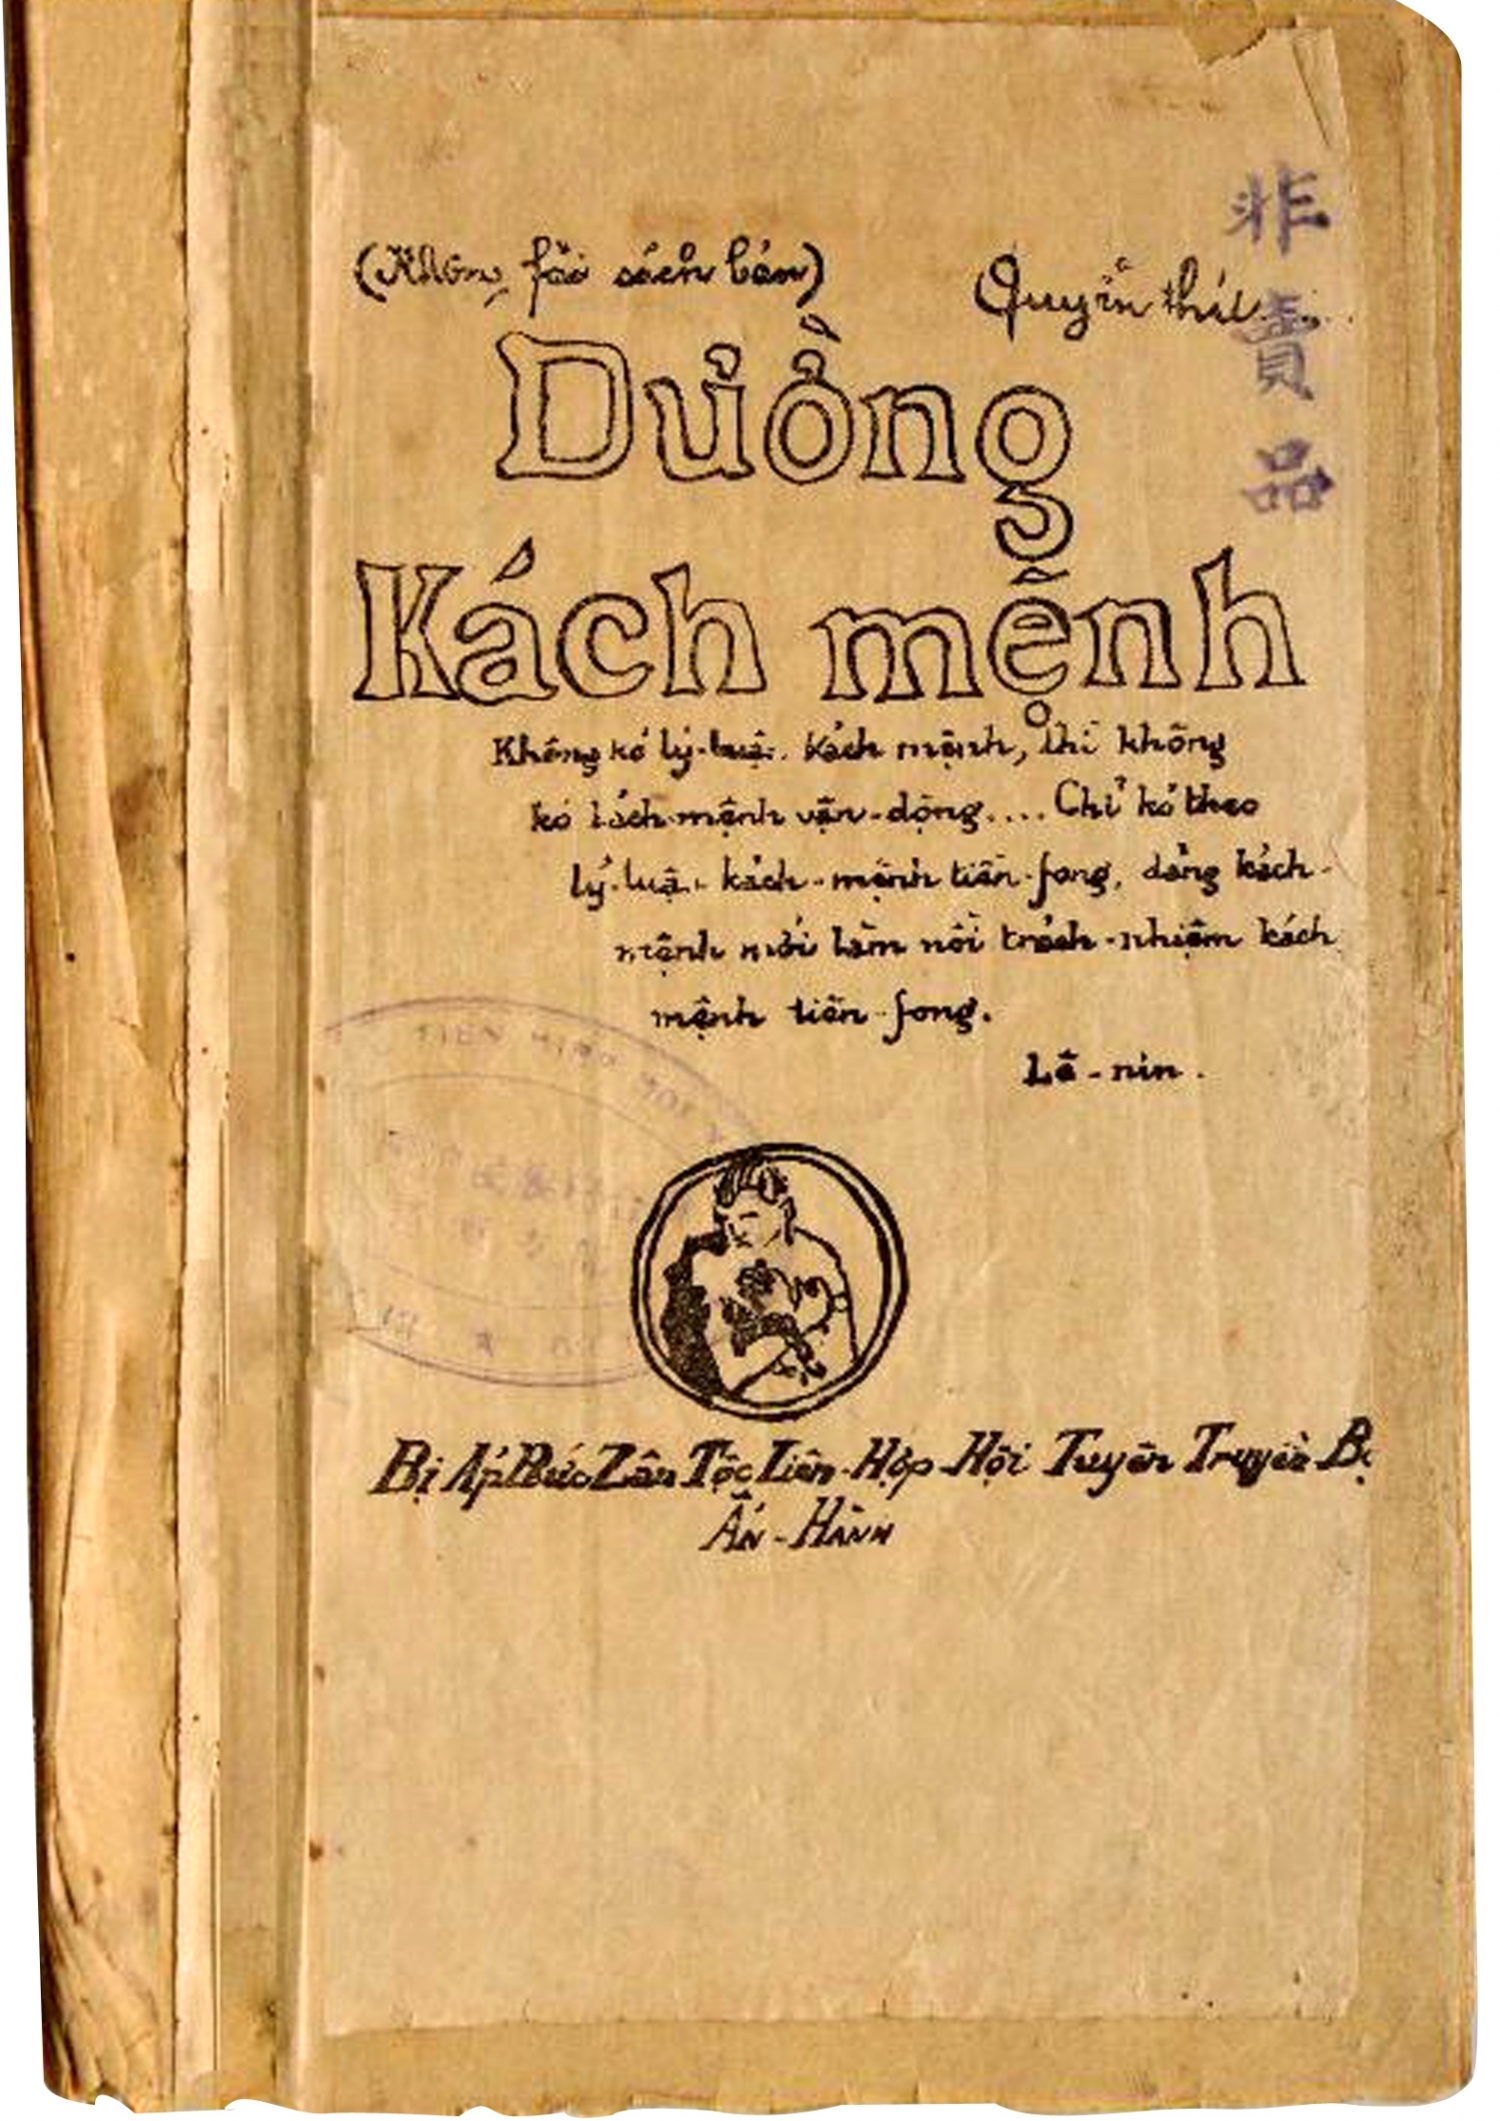 (Không fải sách bán)
Quyển thứ
非賣品
Dường
Kách mệnh
Không kó lý-luận kách mệnh, thì không
kó kách-mệnh vận-dộng.... Chỉ kó theo
lý-luận kách-mệnh tiền-fong, dảng kách-
mệnh mới làm nổi trách-nhiệm kách
mệnh tiền-fong.
Lê-nin.
TIEN
Bị Áp Bức Zân Tộc Liên-Hợp Hội Tuyên Truyền Bộ
Ấn-Hành